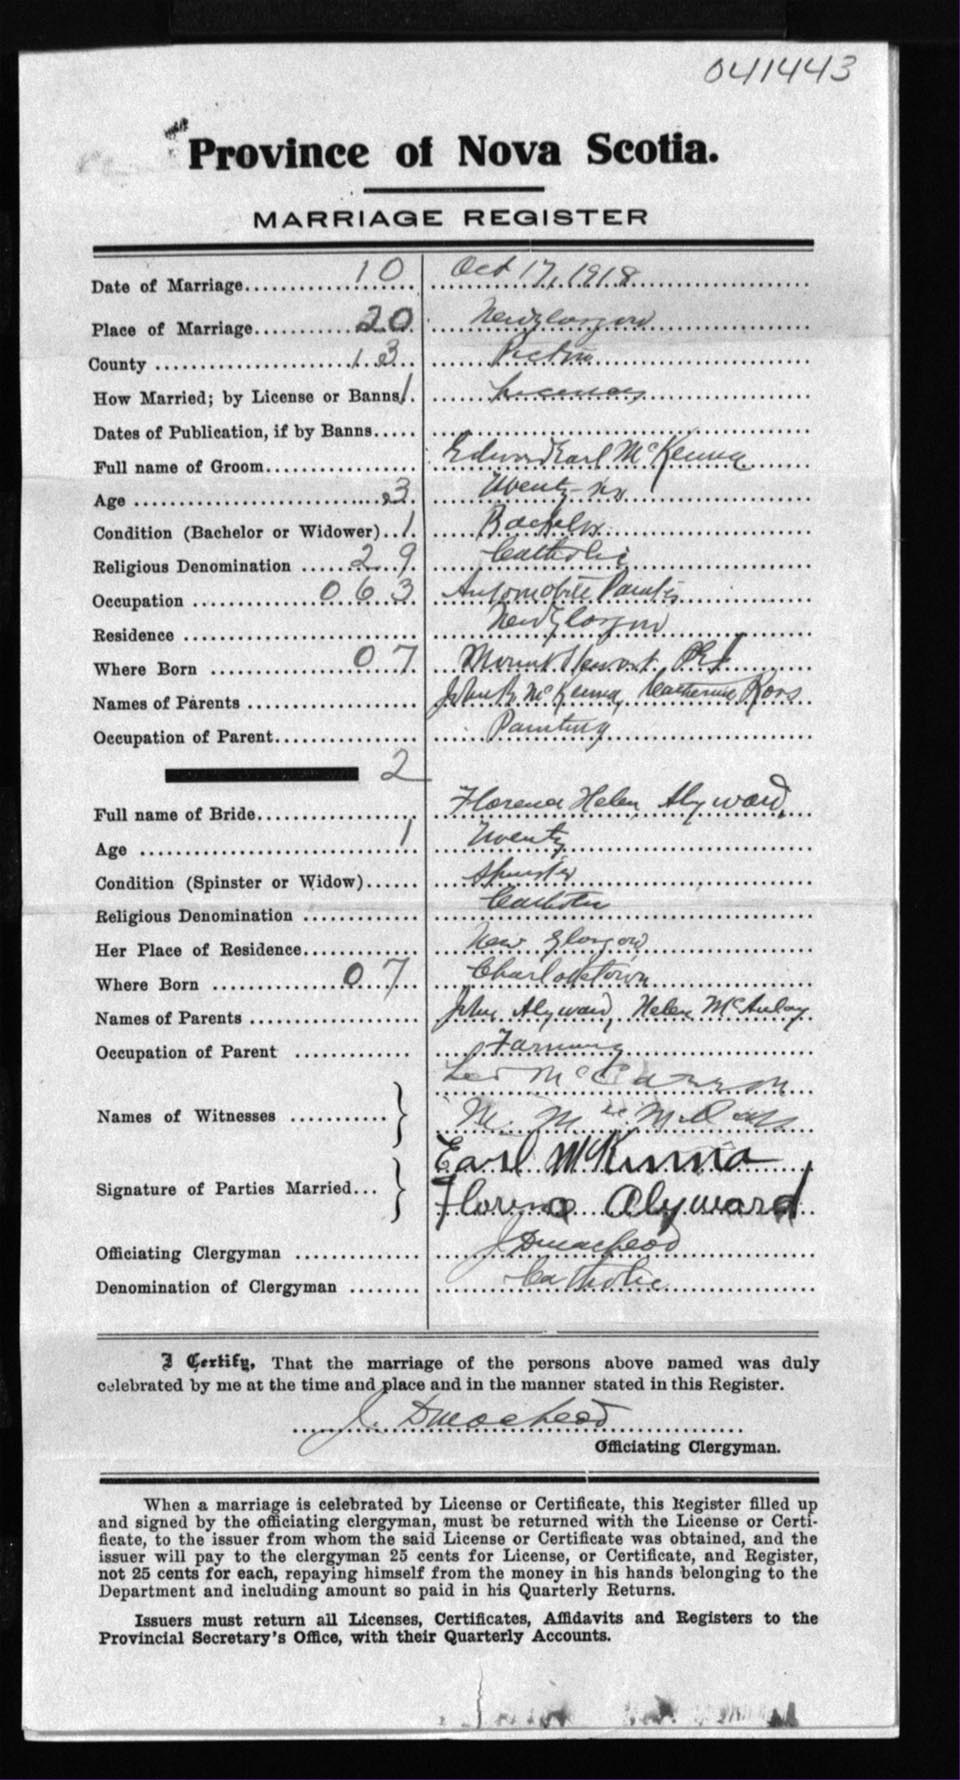 041443
Province of Nova Scotia.
MARRIAGE REGISTER
Date of Marriage 10 Oct 17, 1918
Place of Marriage 20 New Glasgow
County 13 Pictou
How Married; by License or Banns 1 License
Dates of Publication, if by Banns
Full name of Groom Edward Earl McKenna
Age 3 Twenty-
Condition (Bachelor or Widower) 1 Bachelor
Religious Denomination 29 Catholic
Occupation 063 Automobile Painter
Residence New Glasgow
Where Born 07 Mount Stewart, PEI
Names of Parents John McKenna, Catherine Koos
Occupation of Parent Painting
2
Full name of Bride Florence Helen Alyward
Age 1 Twenty
Condition (Spinster or Widow) Spinster
Religious Denomination Catholic
Her Place of Residence New Glasgow
Where Born 07 Charlottetown
Names of Parents John Alyward, Helen McAulay
Occupation of Parent Farming
Leo McCarron
Names of Witnesses } M. M
Earl McKinna
Signature of Parties Married }
Florence Alyward
Officiating Clergyman J D MacLeod
Denomination of Clergyman Catholic
I Certify, That the marriage of the persons above named was duly
celebrated by me at the time and place and in the manner stated in this Register.
J. D MacLeod
Officiating Clergyman.
When a marriage is celebrated by License or Certificate, this Register filled up
and signed by the officiating clergyman, must be returned with the License or Certi-
ficate, to the issuer from whom the said License or Certificate was obtained, and the
issuer will pay to the clergyman 25 cents for License, or Certificate, and Register,
not 25 cents for each, repaying himself from the money in his hands belonging to the
Department and including amount so paid in his Quarterly Returns.
Issuers must return all Licenses, Certificates, Affidavits and Registers to the
Provincial Secretary's Office, with their Quarterly Accounts.